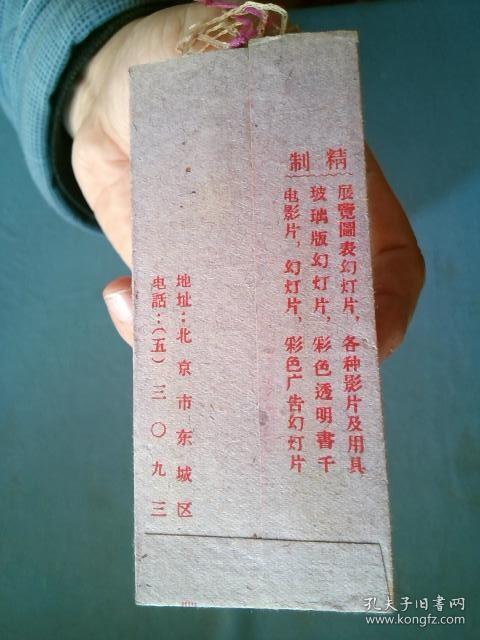 精制
展覽圖表幻灯片，各种影片及用具
玻璃版幻灯片，彩色透明書千
电影片，幻灯片，彩色广告幻灯片
地址：北京市东城区
电話：（五）三〇九三
孔夫子旧书网
www.kongfz.com